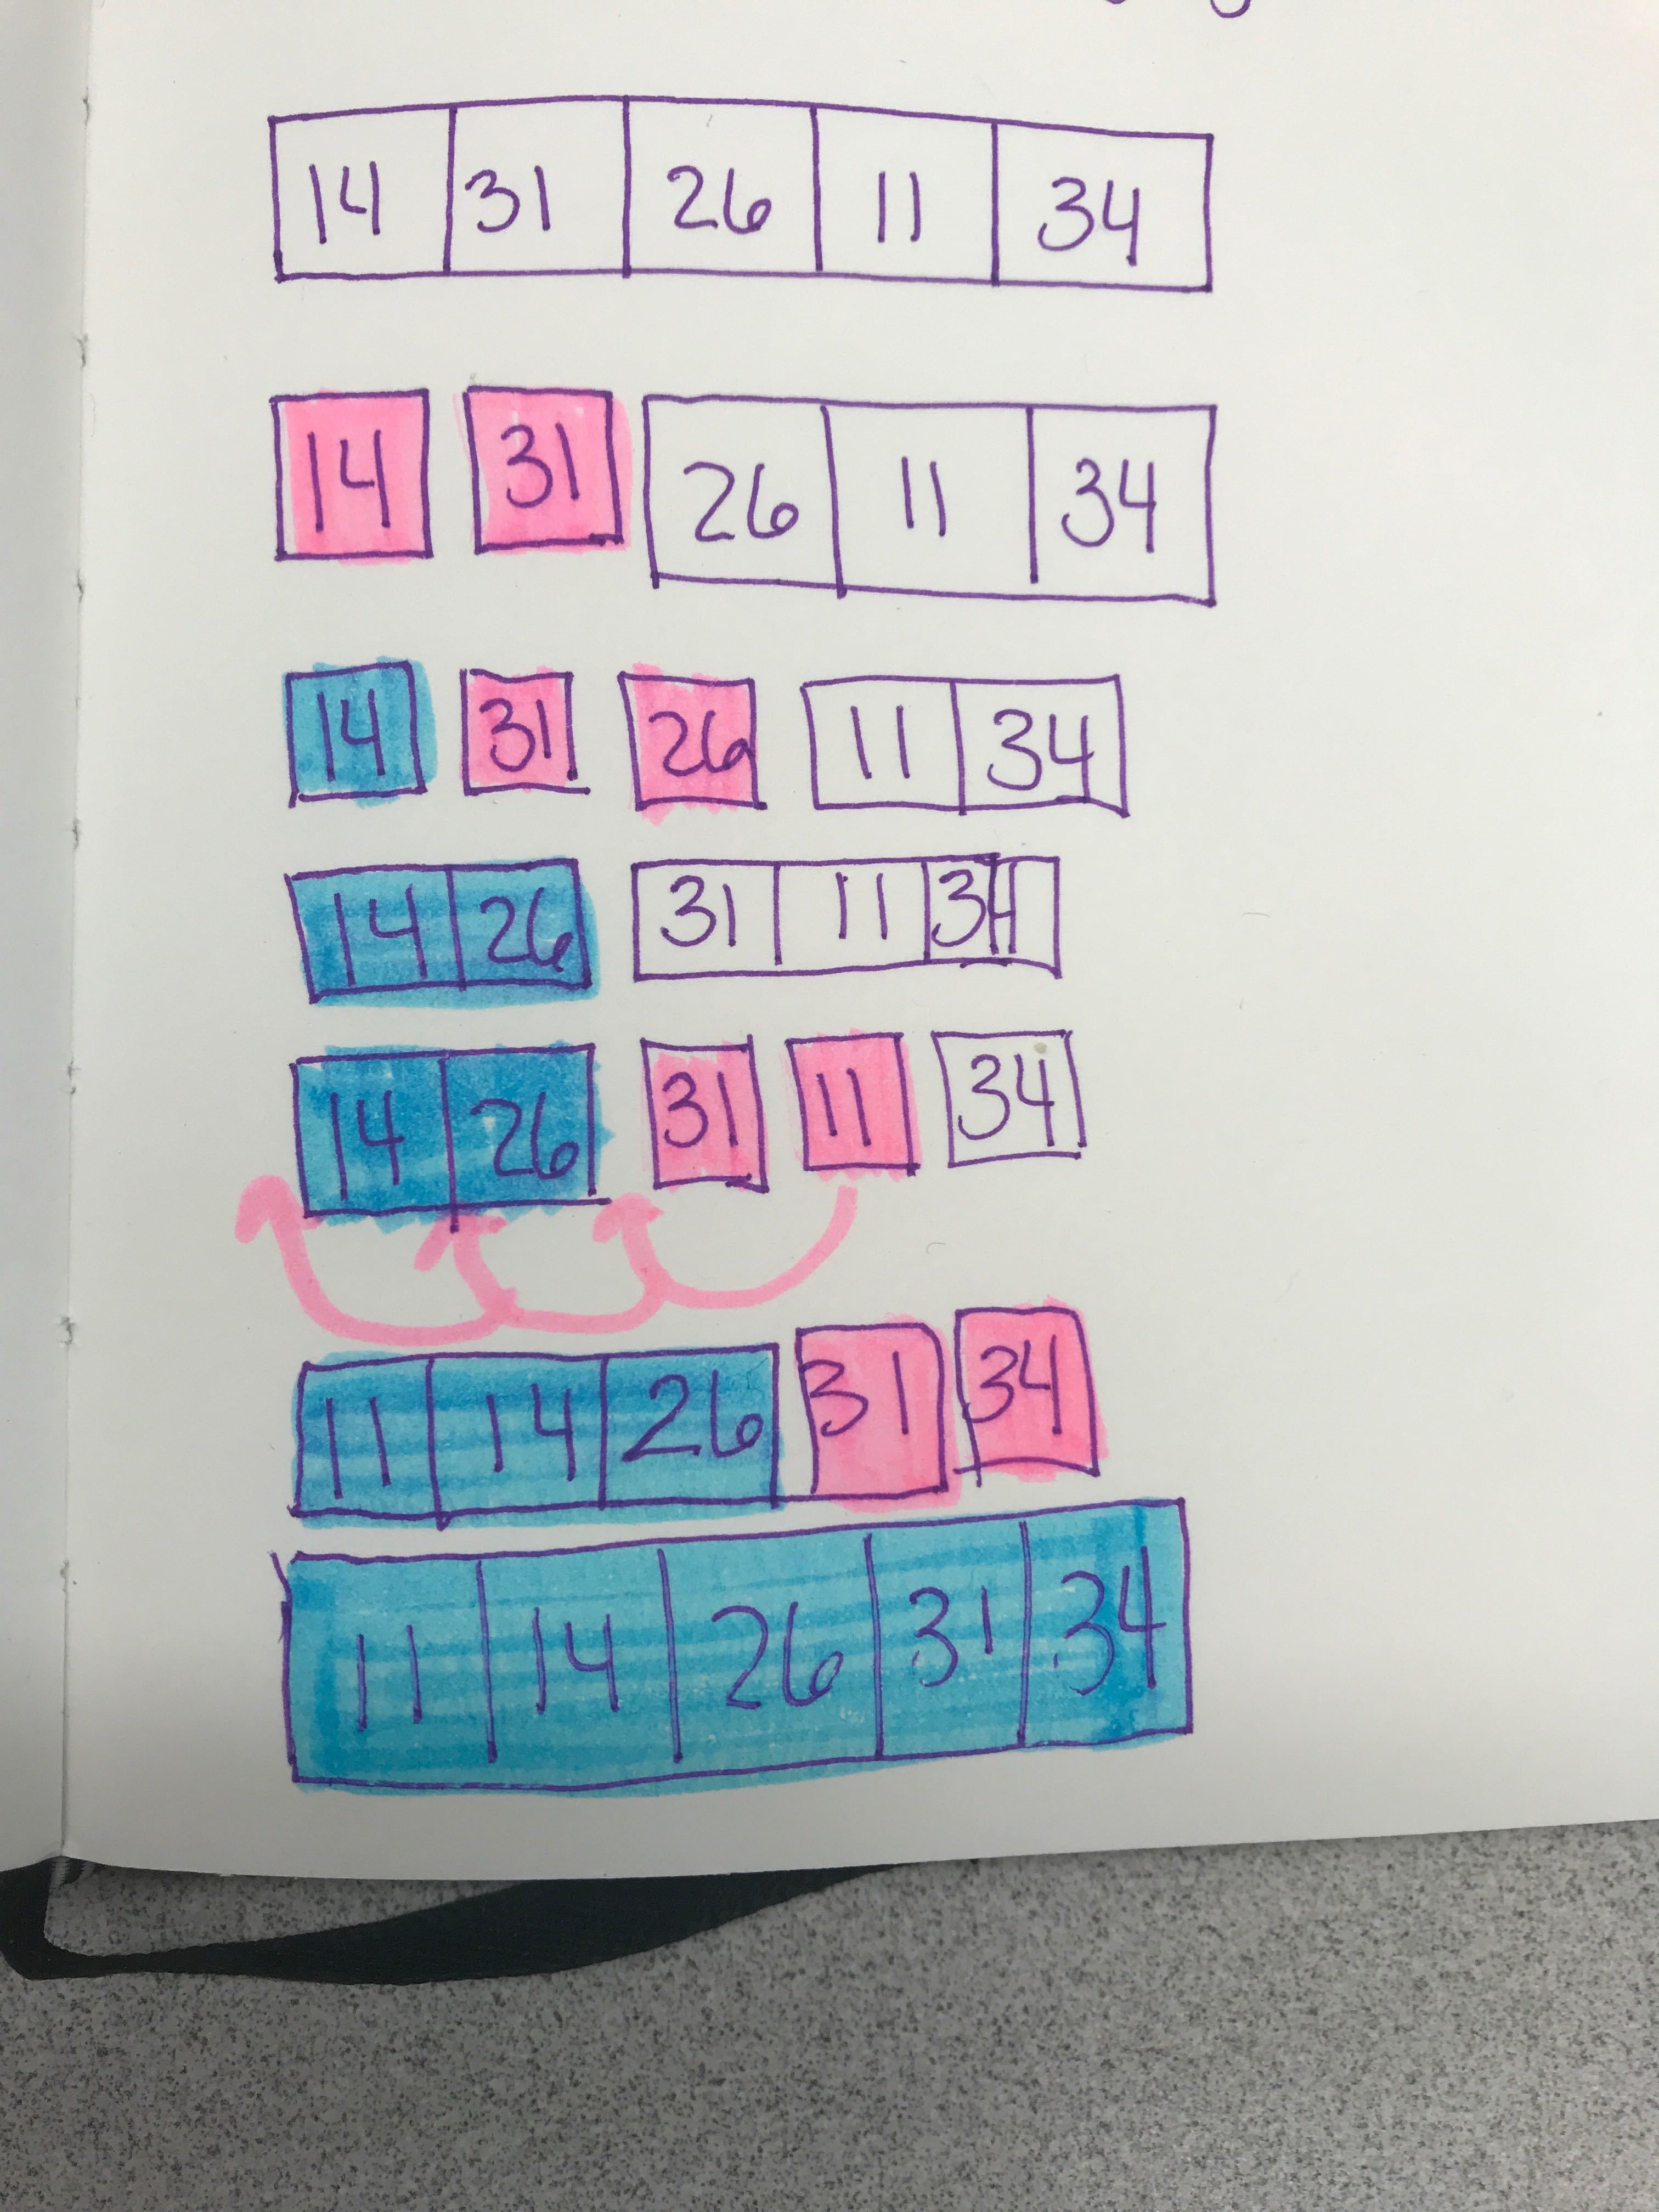 14 31 26 11 34
14 31 26 11 34
14 31 26 11 34
14 26 31 11 34
14 26 31 11 34
11 14 26 31 34
11 14 26 31 34